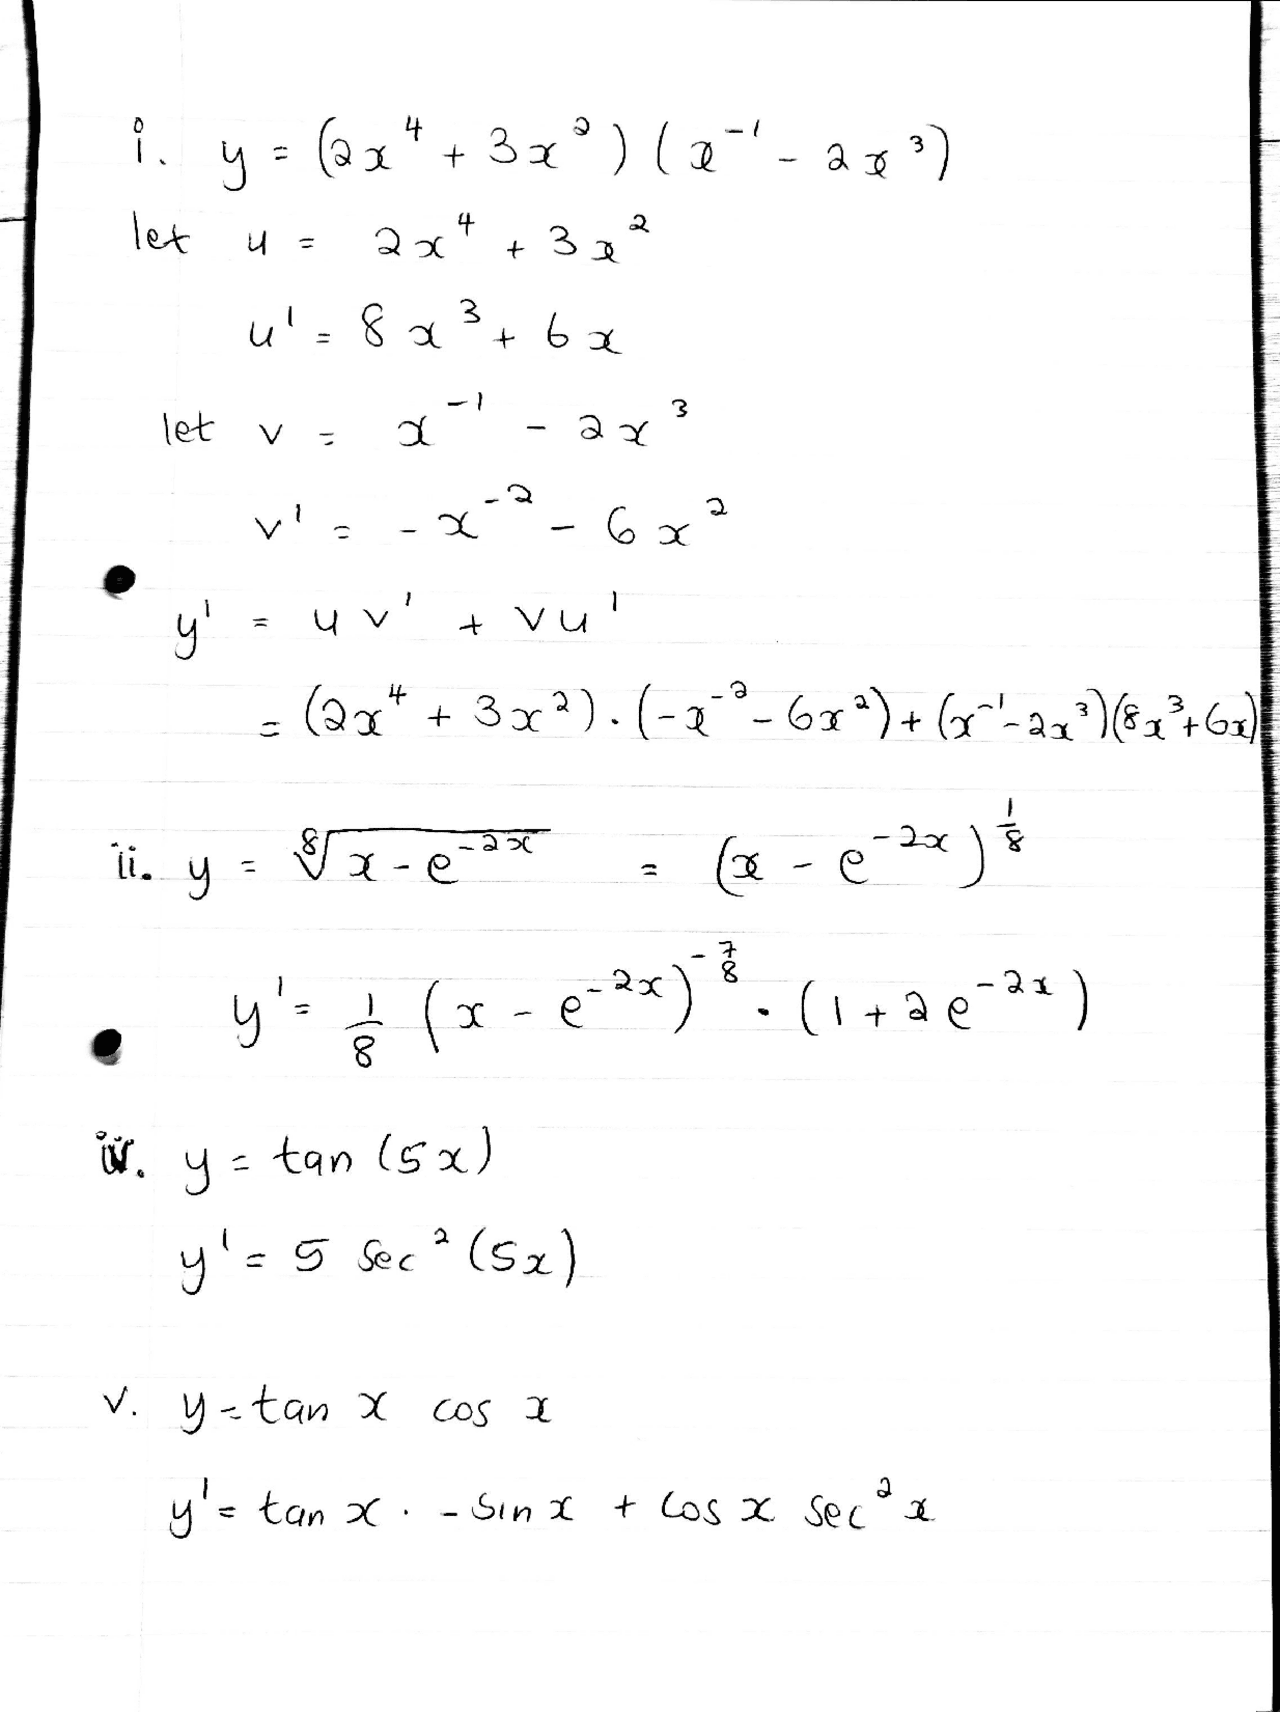 i. y = (2x⁴ + 3x²)(x⁻¹ - 2x³)
let u = 2x⁴ + 3x²
u' = 8x³ + 6x
let v = x⁻¹ - 2x³
v' = -x⁻² - 6x²
y' = uv' + vu'
= (2x⁴ + 3x²).(-x⁻² - 6x²) + (x⁻¹ - 2x³)(8x³ + 6x)
ii. y = ⁸√(x - e⁻²ˣ) = (x - e⁻²ˣ)^(1/8)
y' = 1/8 (x - e⁻²ˣ)^(-7/8) . (1 + 2e⁻²ˣ)
y = tan (5x)
y' = 5 sec² (5x)
v. y = tan x cos x
y' = tan x . - sin x + cos x sec² x